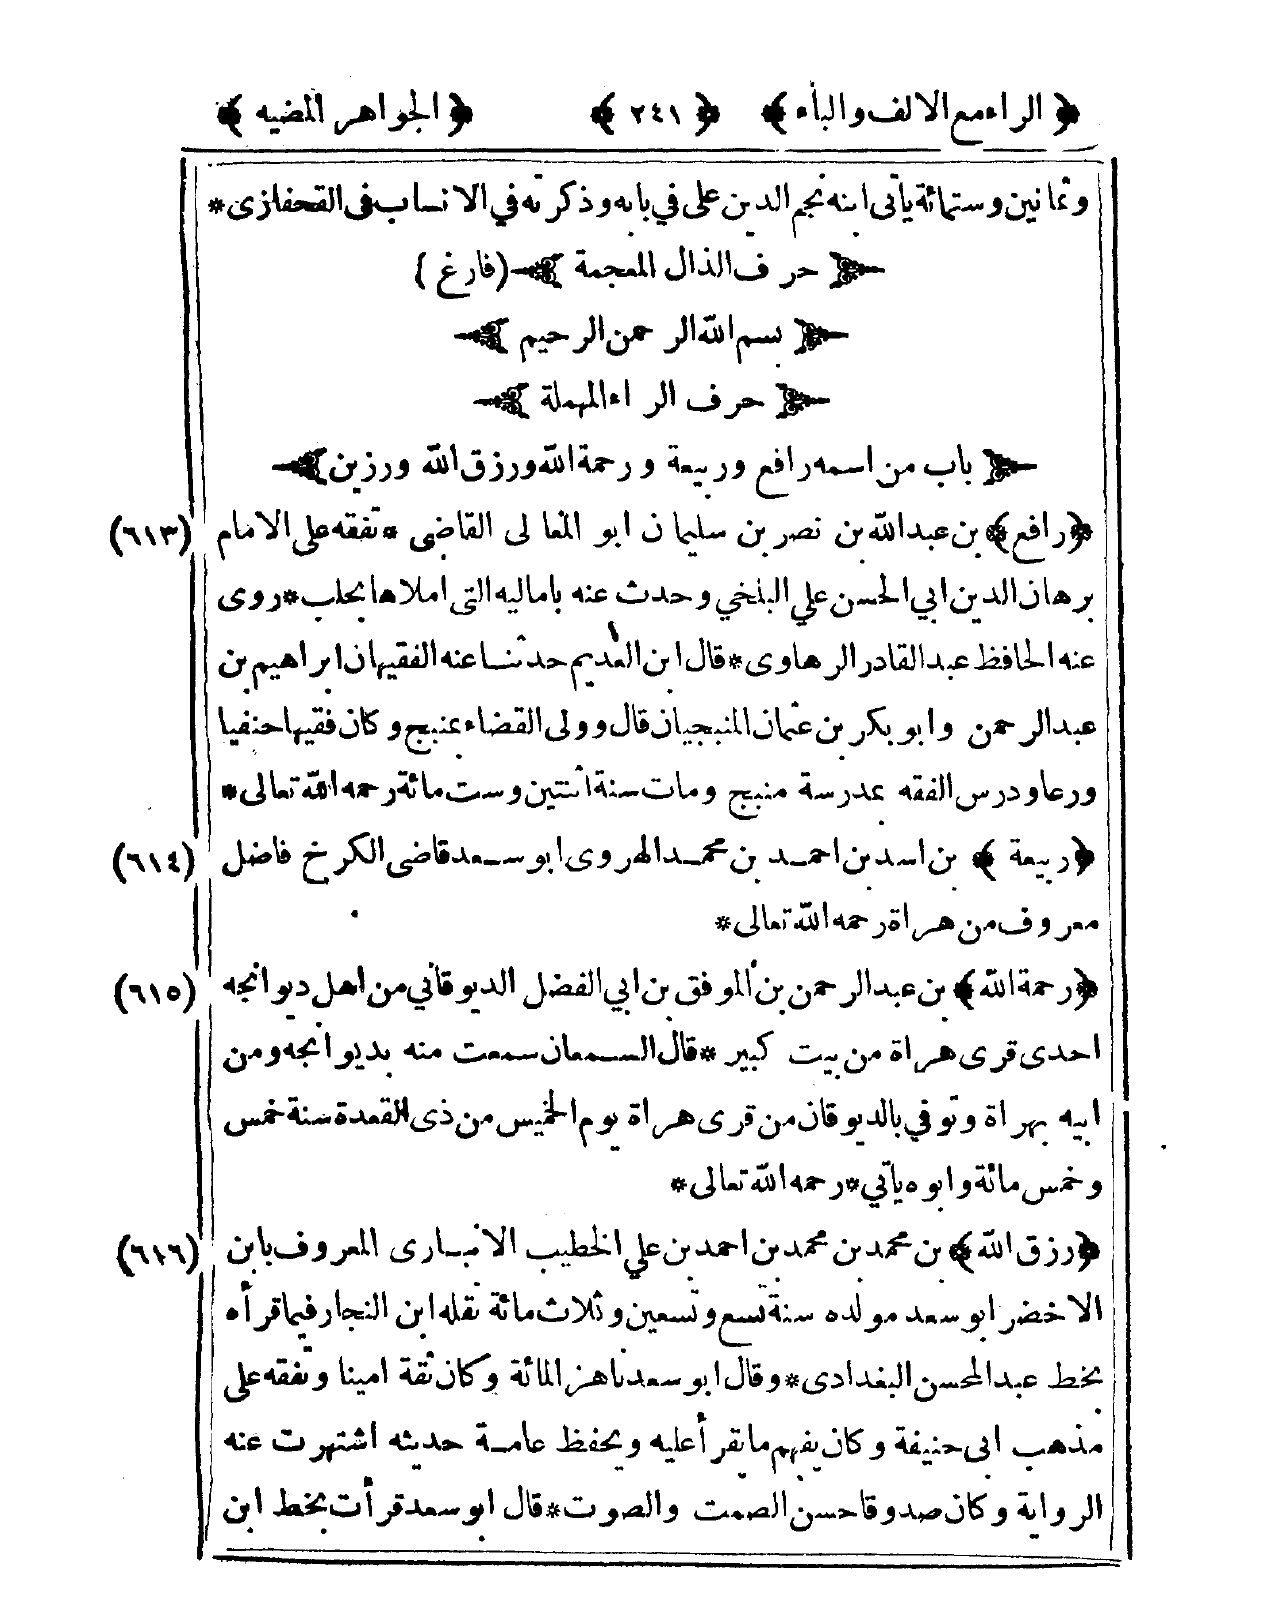 ﴿ الراء مع الالف والباء ﴾ ﴿ ٢٤١ ﴾ ﴿ الجواهر المضيه ﴾
وثمانين وستمائة يأتى ابنه نجم الدين على في بابه وذكرته في الانساب فى القحفازى *
﴿ حرف الذال المعجمة ﴾ (فارغ)
﴿ بسم الله الرحمن الرحيم ﴾
﴿ حرف الراء المهملة ﴾
﴿ باب من اسمه رافع وربيعة ورحمة الله ورزق الله ورزين ﴾
﴿ رافع ﴾ بن عبد الله بن نصر بن سليمان ابو المعالى القاضى * تفقه على الامام (٦١٣)
برهان الدين ابي الحسن علي البلخي وحدث عنه باماليه التى املاها بحلب * روى
عنه الحافظ عبد القادر الرهاوى * قال ابن العديم حدثنا عنه الفقيهان ابراهيم بن
عبد الرحمن وابو بكر بن عثمان المنبجيان قال وولى القضاء بمنبج وكان فقيها حنفيا
ورعا ودرس الفقه بمدرسة منبج ومات سنة اثنتين وست مائة رحمه الله تعالى *
﴿ ربيعة ﴾ بن اسد بن احمد بن محمد الهروى ابو سعد قاضى الكرخ فاضل (٦١٤)
معروف من هراة رحمه الله تعالى *
﴿ رحمة الله ﴾ بن عبد الرحمن بن الموفق بن ابي الفضل الديوقاني من اهل ديوانجه (٦١٥)
احدى قرى هراة من بيت كبير * قال السمعان سمعت منه بديوانجه ومن
ابيه بهراة وتوفي بالديوقان من قرى هراة يوم الخميس من ذى القعدة سنة خمس
وخمس مائة وابوه يأتي * رحمه الله تعالى *
﴿ رزق الله ﴾ بن محمد بن محمد بن احمد بن علي الخطيب الانبارى المعروف بابن (٦١٦)
الاخضر ابو سعد مولده سنة تسع وتسعين وثلاث مائة نقله ابن النجار فيما قرأه
بخط عبد المحسن البغدادى * وقال ابو سعد ناهز المائة وكان ثقة امينا وتفقه على
مذهب ابى حنيفة وكان يفهم ما يقرأ عليه ويحفظ عامة حديثه اشتهرت عنه
الرواية وكان صدوقا حسن الصمت والصوت * قال ابو سعد قرأت بخط ابن